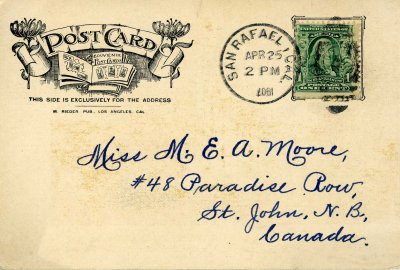 POST CARD
SOUVENIR
THIS SIDE IS EXCLUSIVELY FOR THE ADDRESS
M. RIEDER PUB., LOS ANGELES, CAL.
SAN RAFAEL, CAL.
APR 25
2 PM
Miss M. E. A. Moore,
#48 Paradise Row,
St. John, N. B.,
Canada.